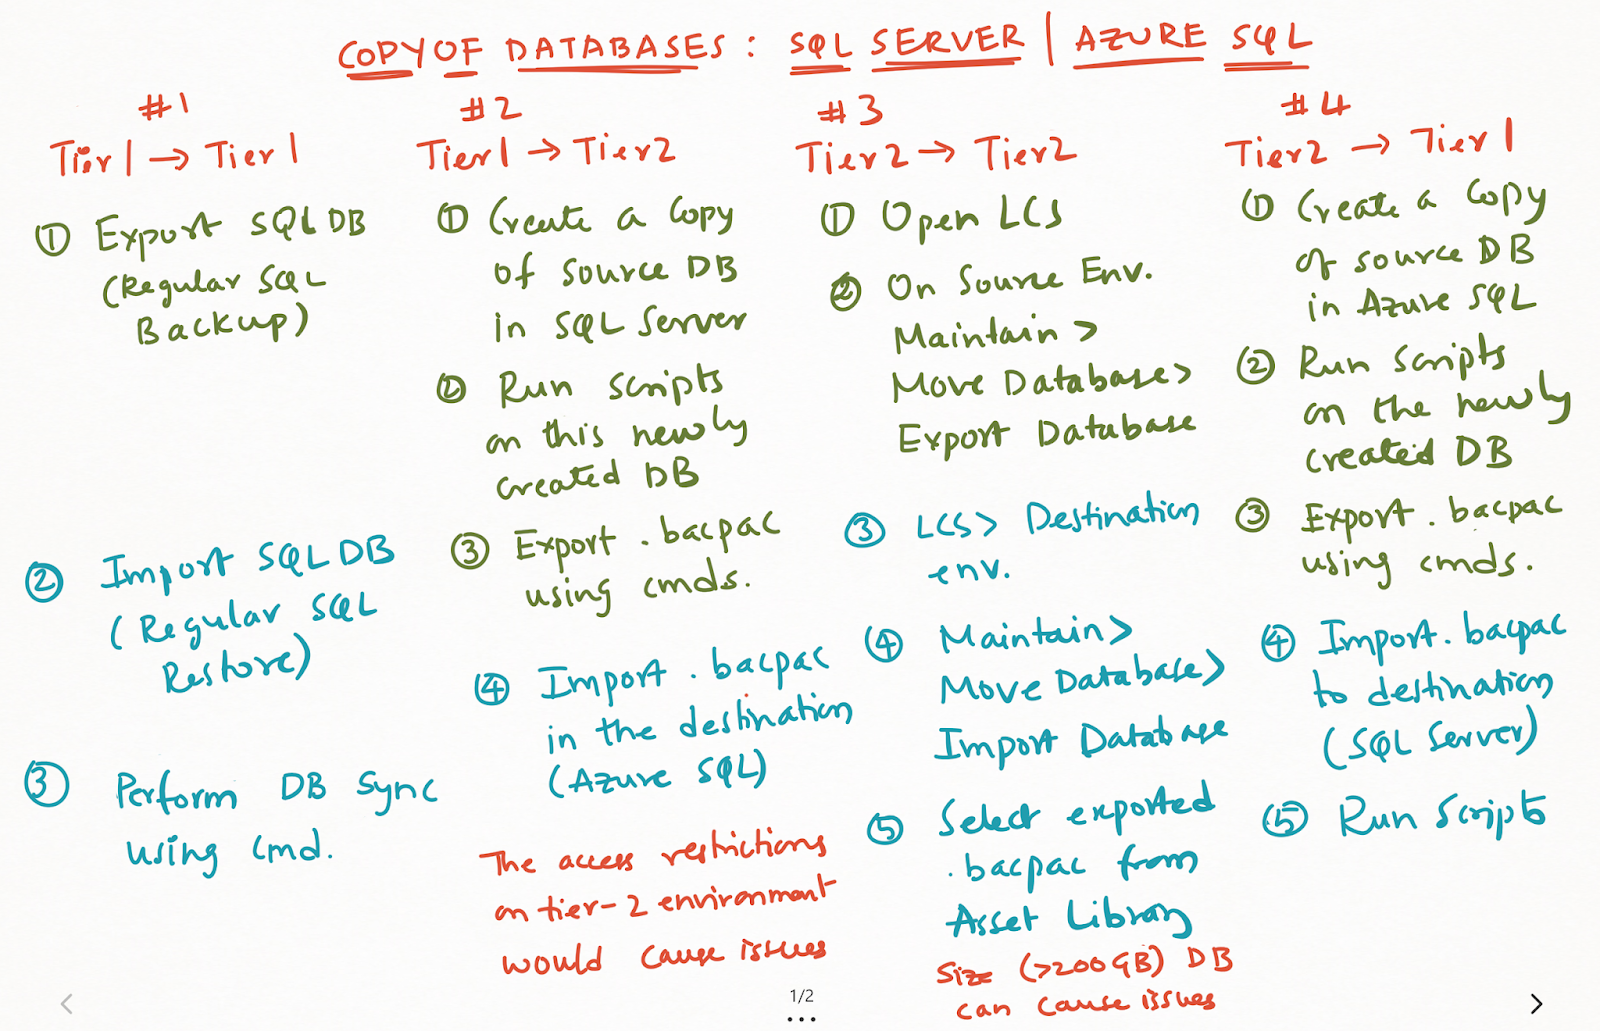 COPY OF DATABASES : SQL SERVER | AZURE SQL
#1
Tier 1 → Tier 1
① Export SQL DB
(Regular SQL
Backup)
② Import SQL DB
(Regular SQL
Restore)
③ Perform DB Sync
using cmd.
#2
Tier 1 → Tier 2
① Create a Copy
of source DB
in SQL Server
② Run scripts
on this newly
created DB
③ Export .bacpac
using cmds.
④ Import .bacpac
in the destination
(Azure SQL)
The access restrictions
on tier-2 environment
would cause issues
#3
Tier 2 → Tier 2
① Open LCS
② On Source Env.
Maintain >
Move Database >
Export Database
③ LCS > Destination
env.
④ Maintain >
Move Database >
Import Database
⑤ Select exported
.bacpac from
Asset Library
Size (>200GB) DB
can cause issues
#4
Tier 2 → Tier 1
① Create a Copy
of source DB
in Azure SQL
② Run scripts
on the newly
created DB
③ Export .bacpac
using cmds.
④ Import .bacpac
to destination
(SQL Server)
⑤ Run Scripts
1/2